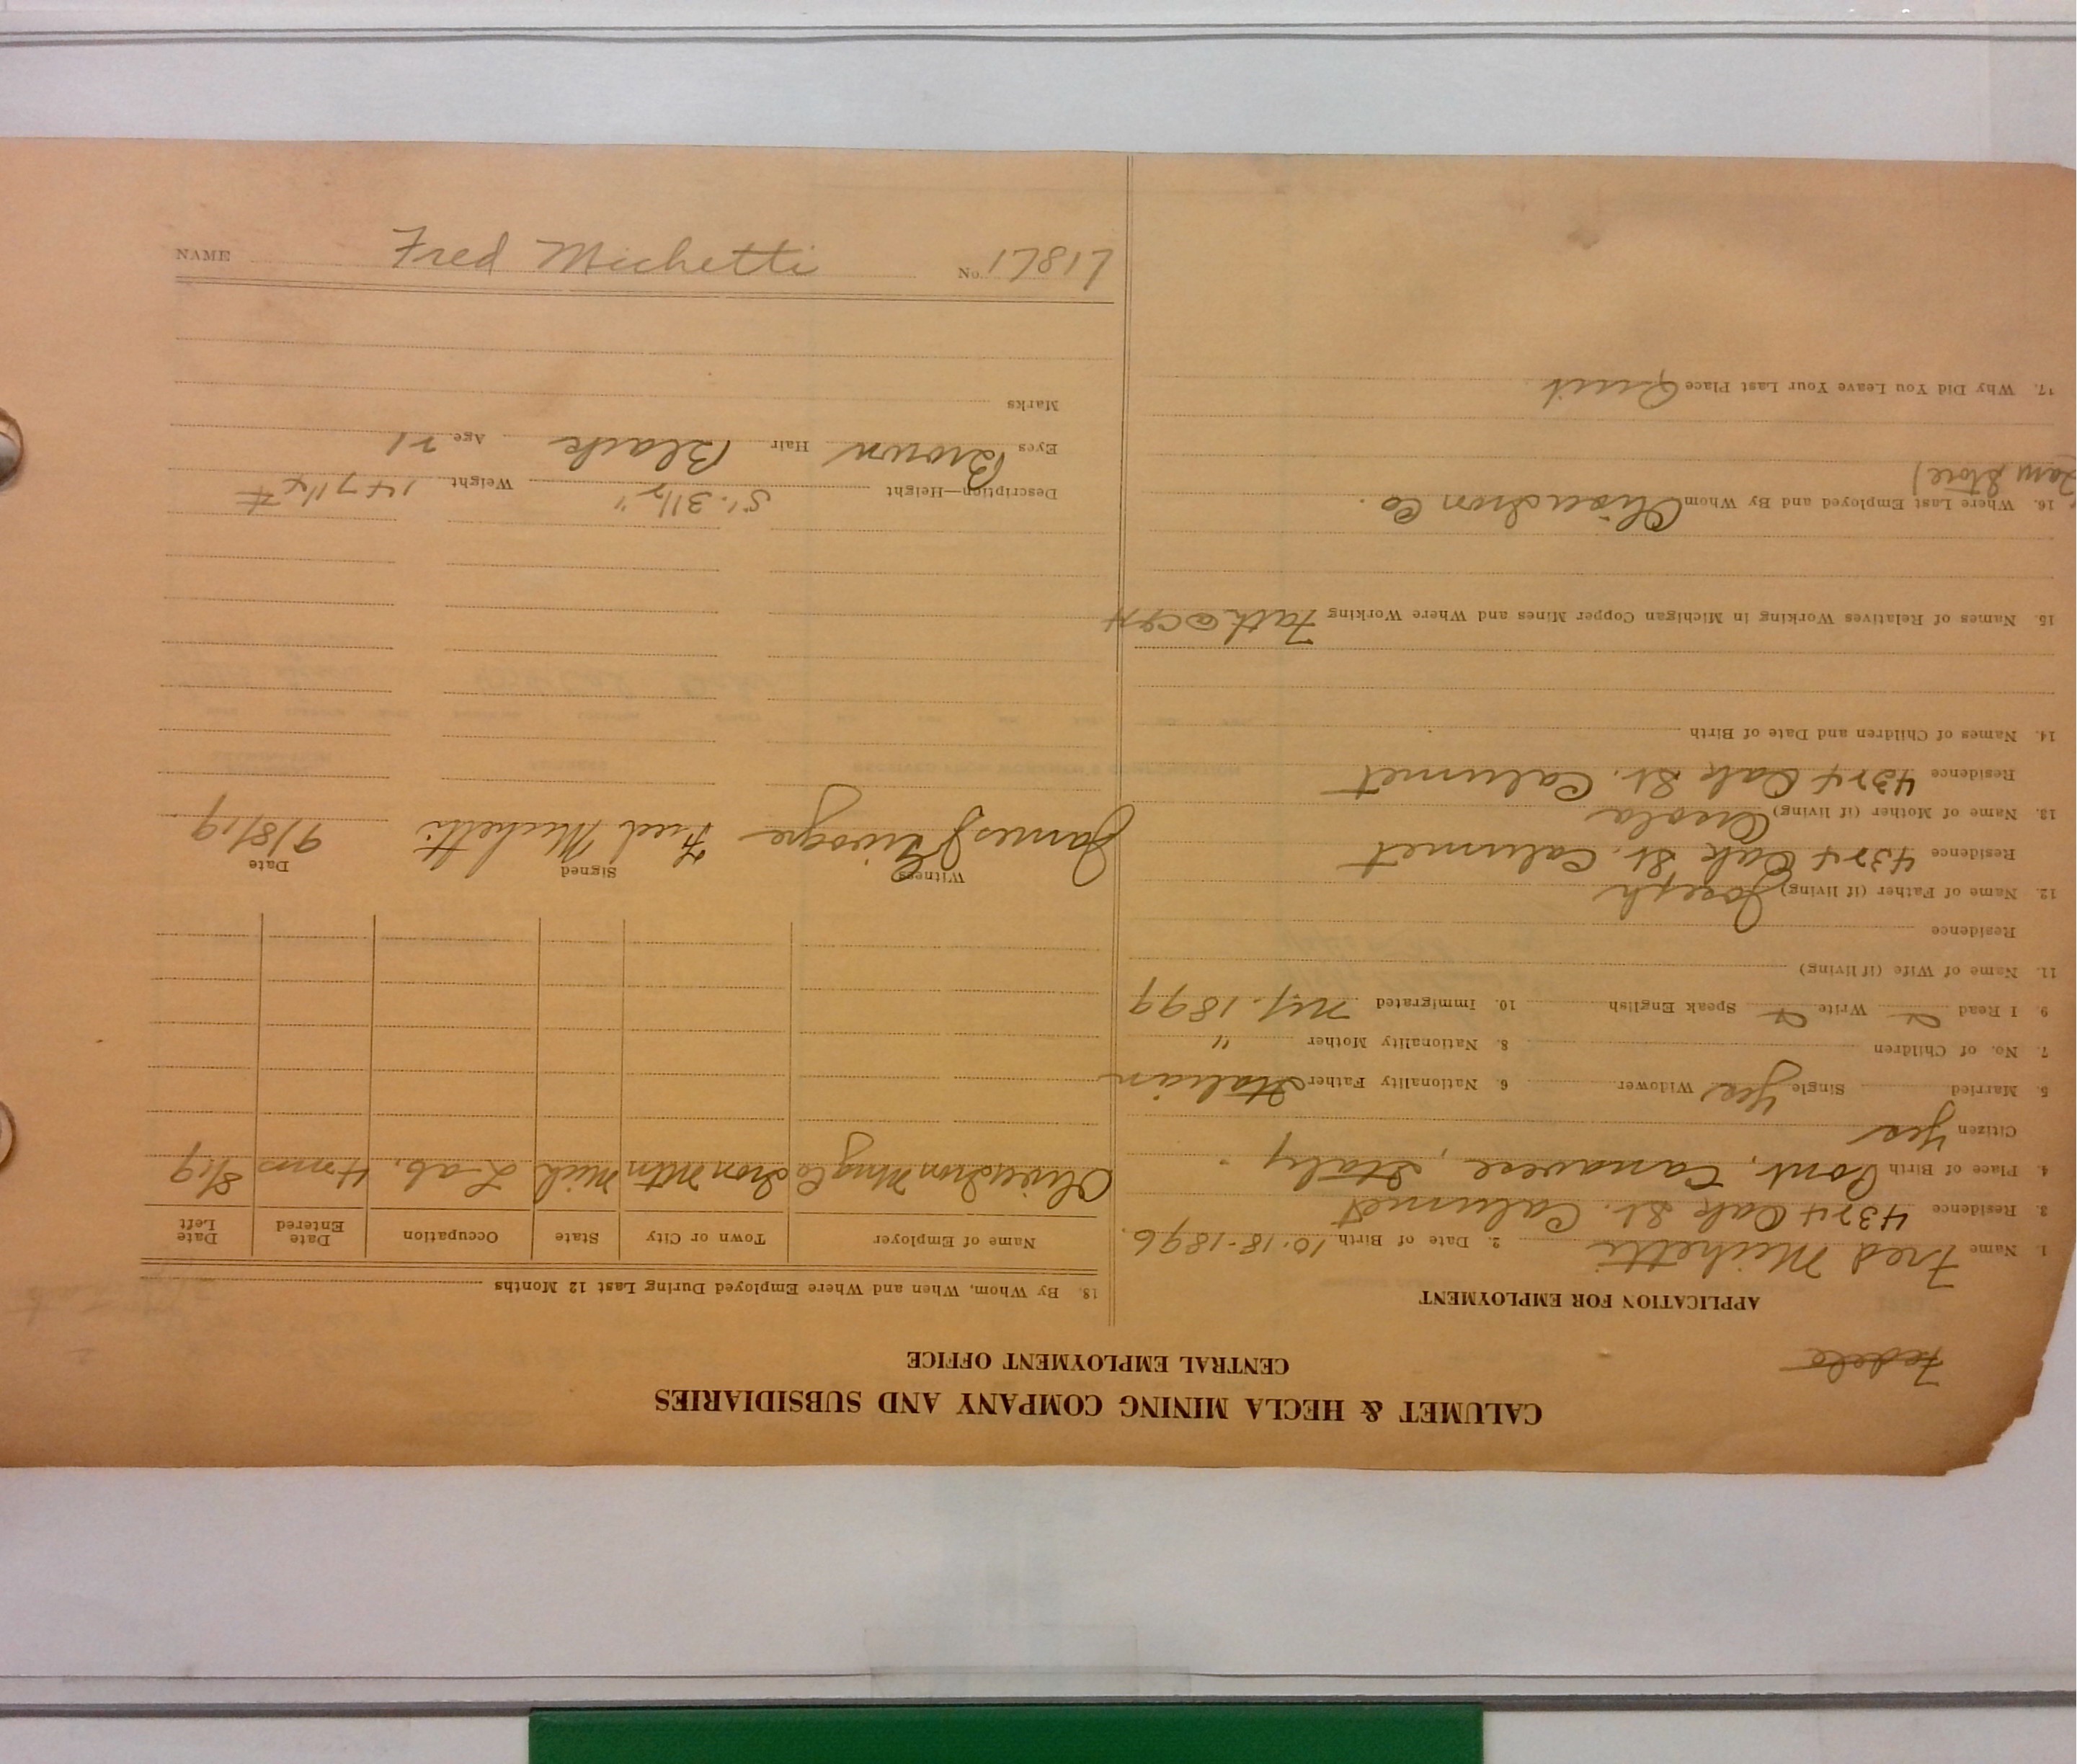 CALUMET & HECLA MINING COMPANY AND SUBSIDIARIES
CENTRAL EMPLOYMENT OFFICE
Fedele
APPLICATION FOR EMPLOYMENT
1. Name Fred Michetti 2. Date of Birth 10-18-1896.
3. Residence 4324 Oak St. Calumet
4. Place of Birth Pont, Canavese, Italy.
Citizen Yes
5. Married Single Yes Widower 6. Nationality Father Italian
7. No. of Children 8. Nationality Mother "
9. I Read Write Speak English 10. Immigrated 1899
11. Name of Wife (if living)
Residence
12. Name of Father (if living) Joseph
Residence 4324 Oak St. Calumet
13. Name of Mother (if living)
Residence 4324 Oak St. Calumet
14. Names of Children and Date of Birth
15. Names of Relatives Working in Michigan Copper Mines and Where Working Fath @ C&H
16. Where Last Employed and By Whom Iron Co.
Store)
17. Why Did You Leave Your Last Place Quit
18. By Whom, When and Where Employed During Last 12 Months
Name of Employer Town or City State Occupation Date Entered Date Left
Iron Mng Co Iron Mtn Mich Lab. 4 mos 8/19
Witness Signed Date
James Fred Michetti 9/8/19
Description—Height 5'. 3 1/2" Weight 147 1/4 #
Eyes Brown Hair Black Age 21
Marks
NAME Fred Michetti No. 17817